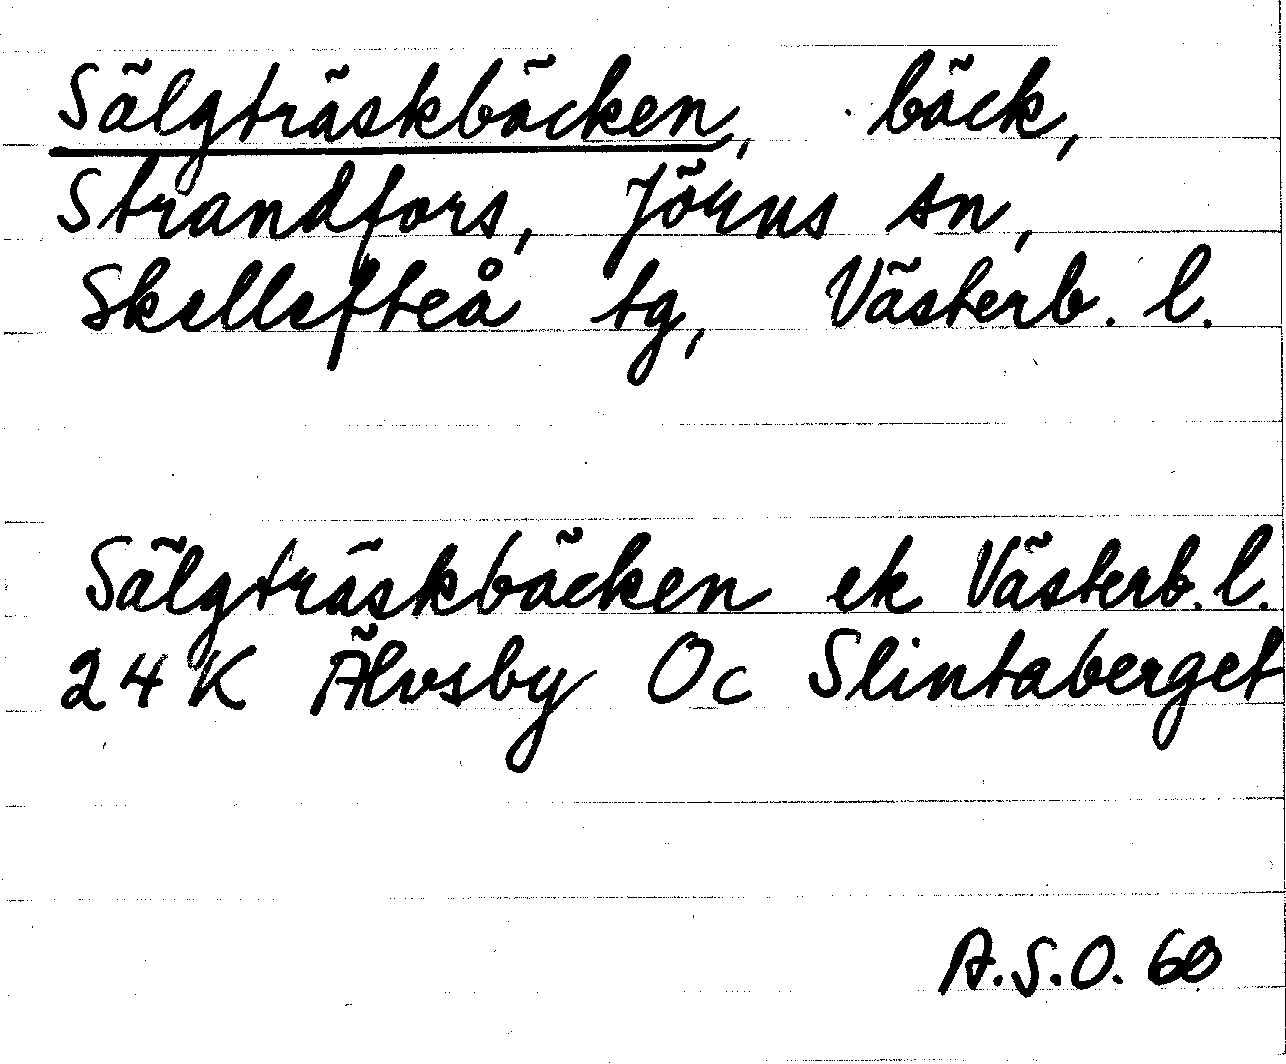 Sälgträskbäcken, bäck,
Strandfors, Jörns sn,
Skellefteå tg, Västerb. l.
Sälgträskbäcken ek Västerb. l.
24 K Älvsby Oc Slintaberget
A.S.O. 60